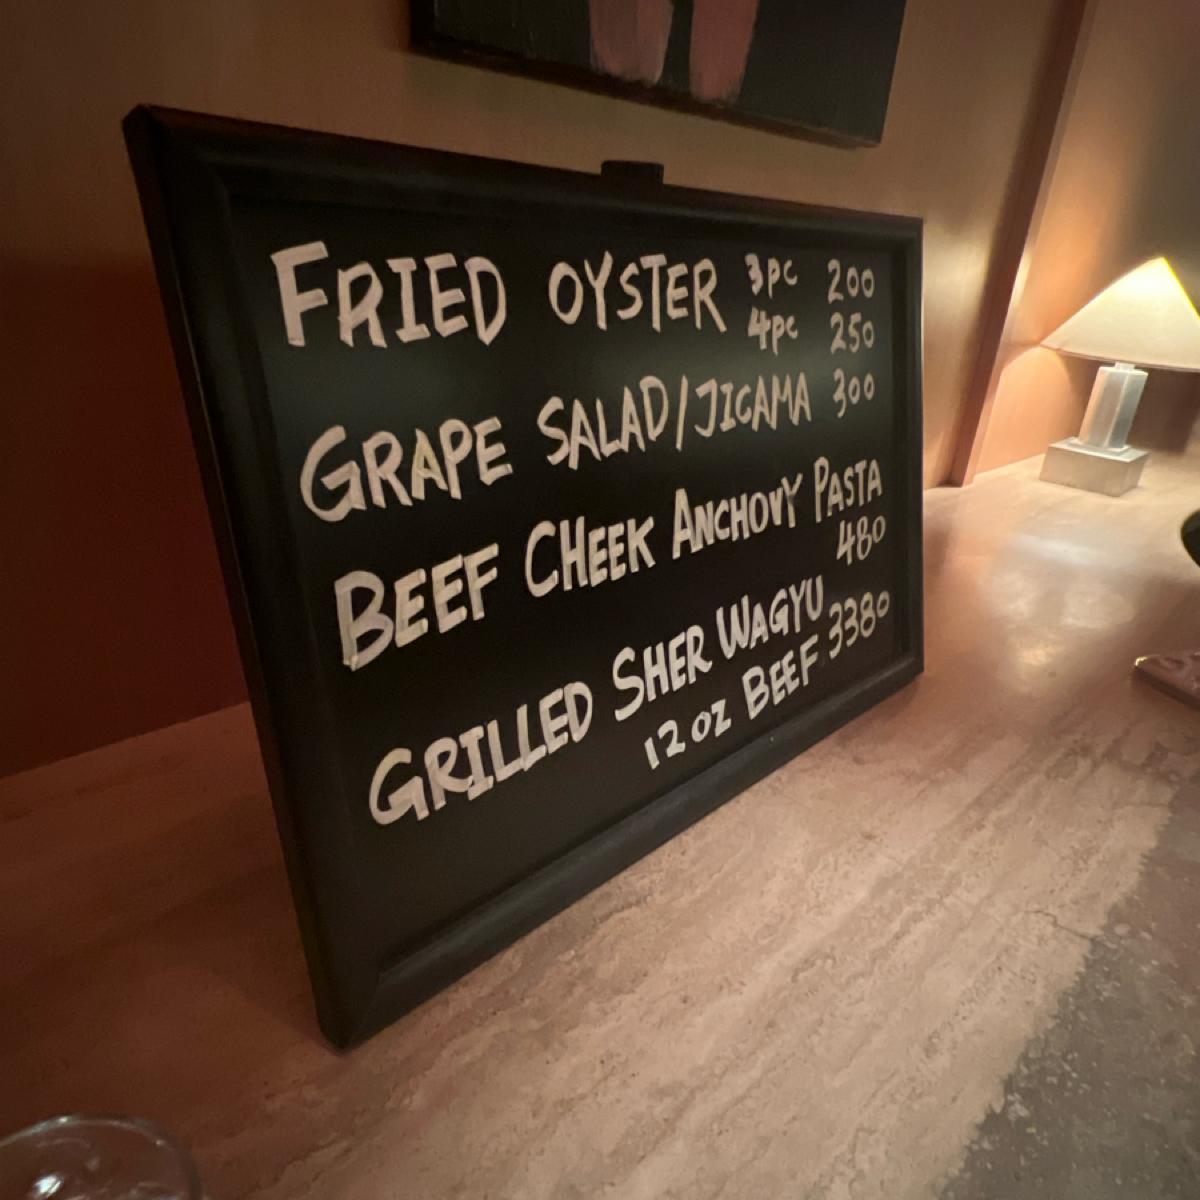 FRIED OYSTER 3pc 200
4pc 250
GRAPE SALAD/JICAMA 300
BEEF CHEEK ANCHOVY PASTA
480
GRILLED SHER WAGYU
12 OZ BEEF 3380